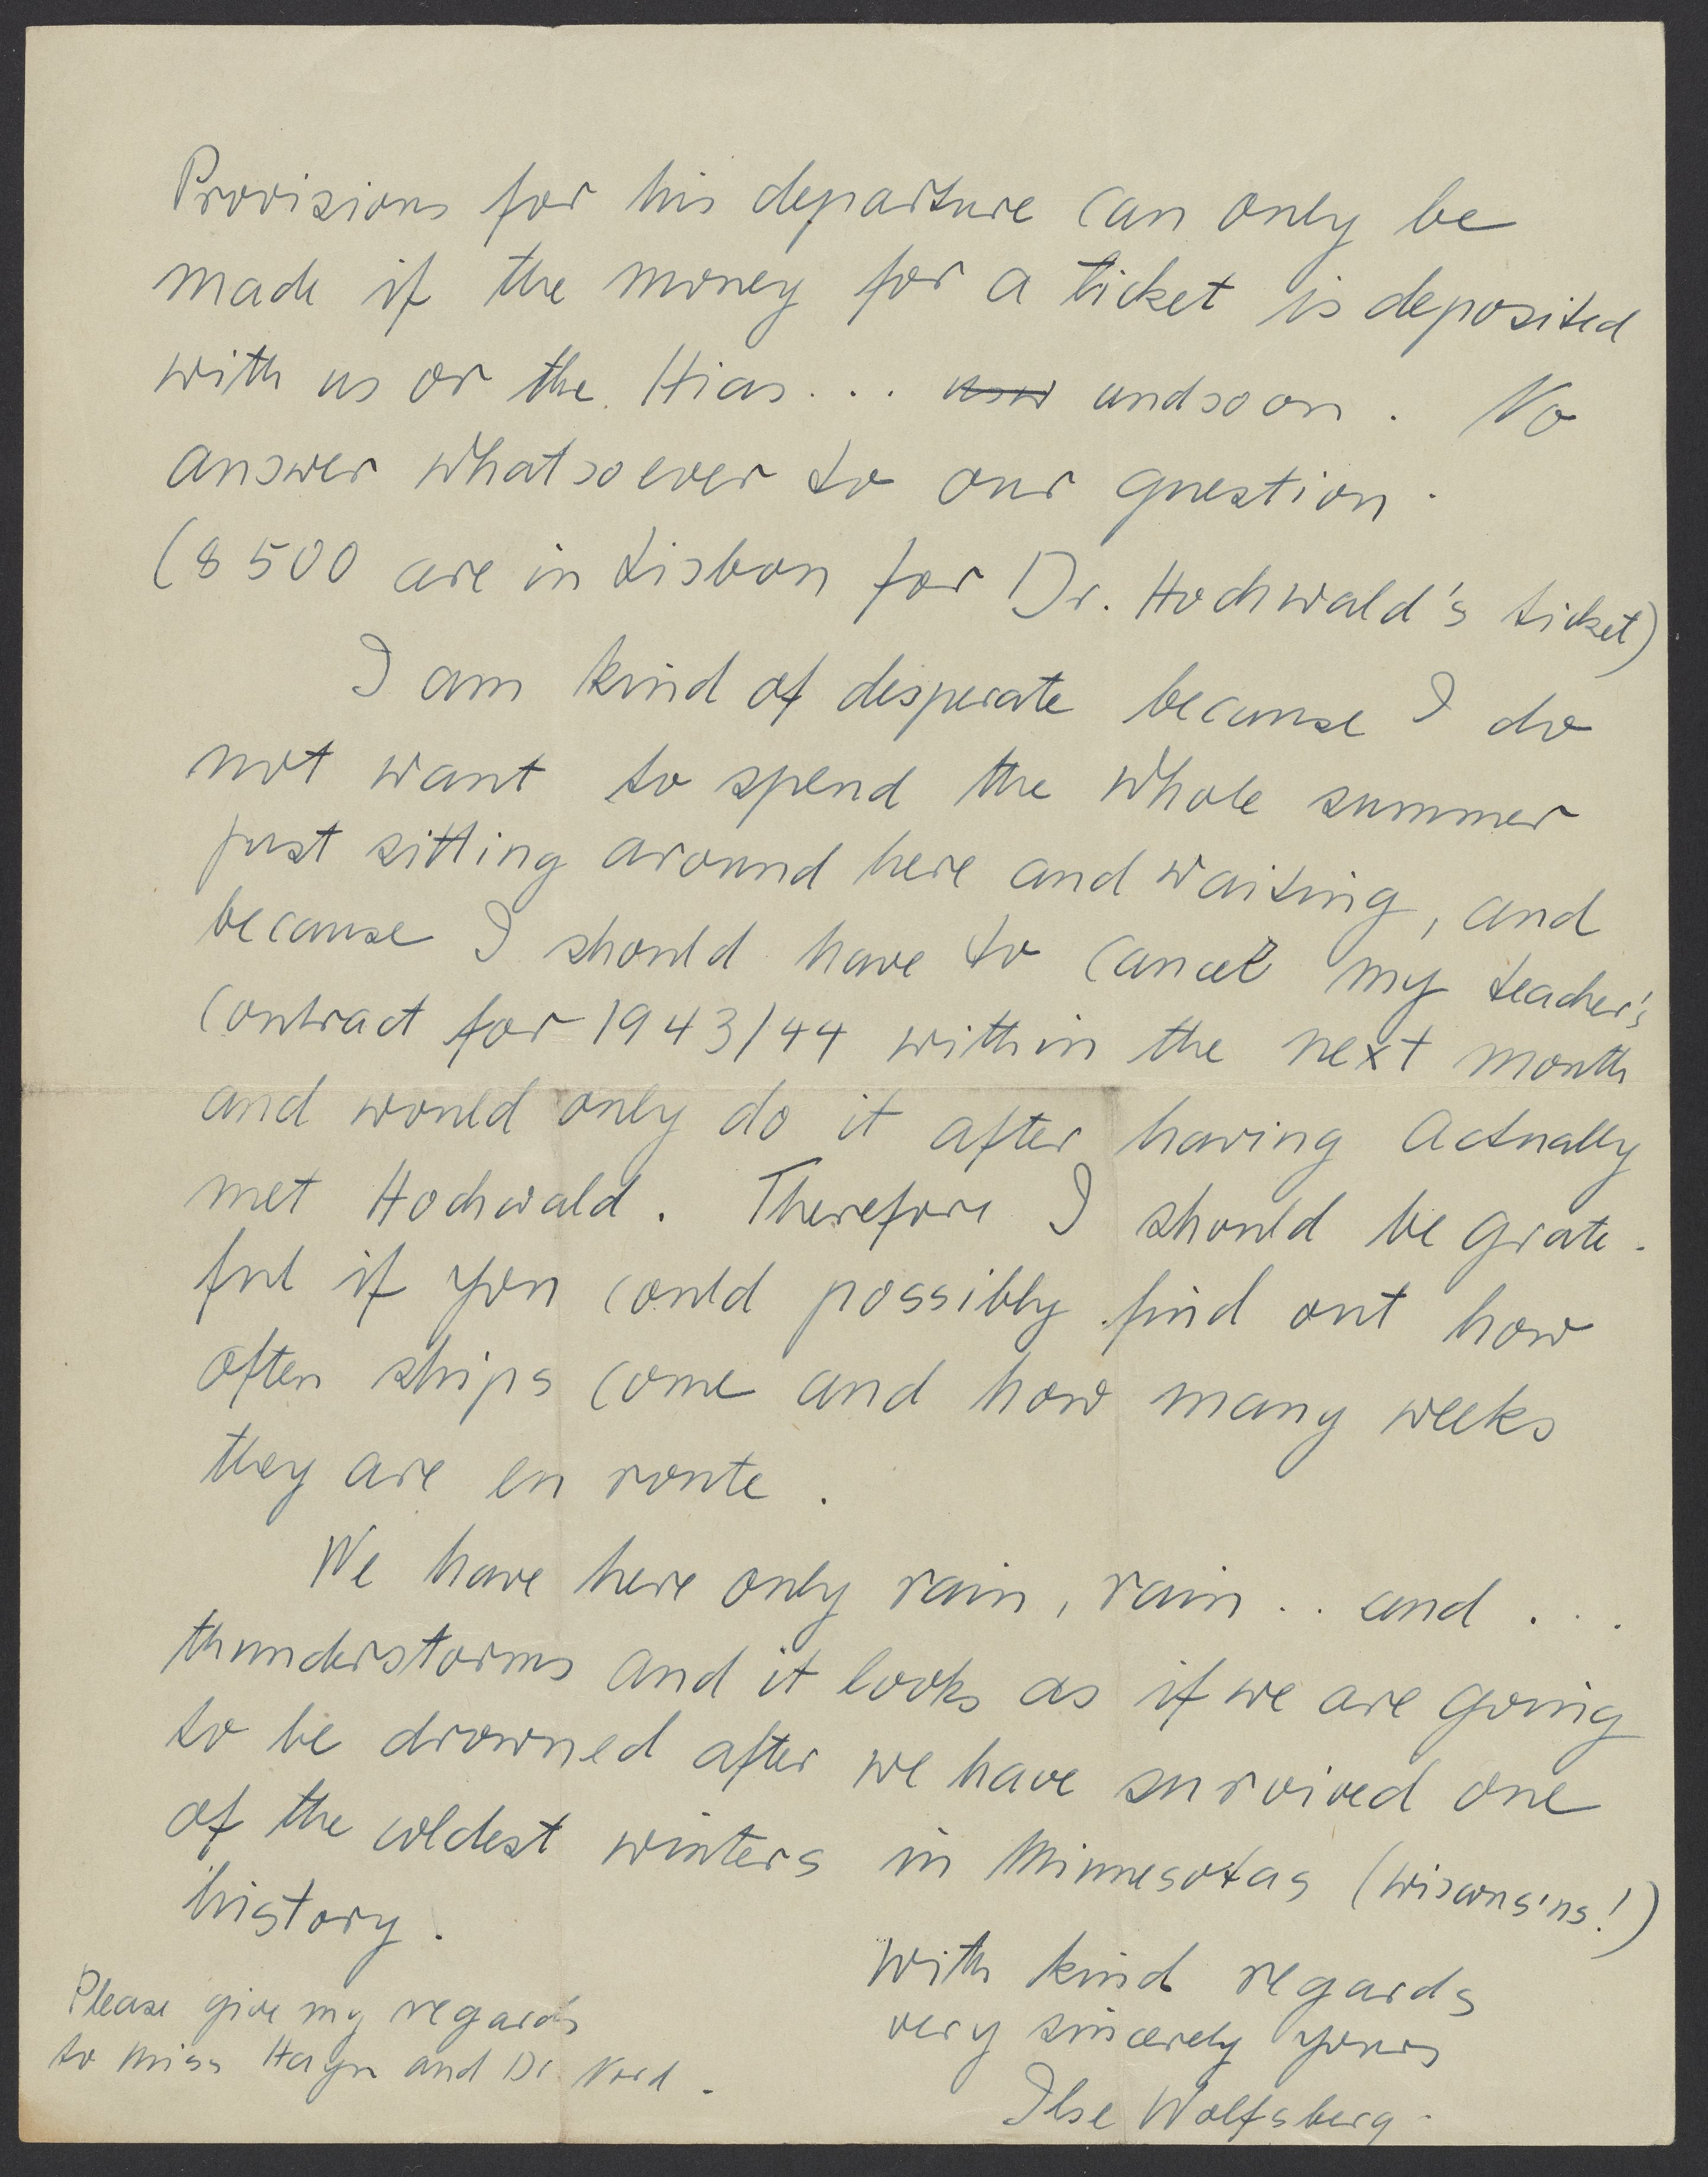 Provisions for his departure can only be
made if the money for a ticket is deposited
with us or the Hias... usw andsoon. No
answer whatsoever to our question.
($ 500 are in Lisbon for Dr. Hochwald's ticket)
I am kind of desperate because I do
not want to spend the whole summer
just sitting around here and waiting, and
because I should have to cancel my teacher's
contract for 1943/44 within the next month
and would only do it after having actually
met Hochwald. Therefore I should be grate-
ful if you could possibly find out how
often ships come and how many weeks
they are en route.
We have here only rain, rain.. and...
thunderstorms and it looks as if we are going
to be drowned after we have survived one
of the coldest winters in Minnesotas (Wisconsins!)
history.
With kind regards
very sincerely yours
Ilse Wolfsberg.
Please give my regards
to Miss and Dr. Nord.